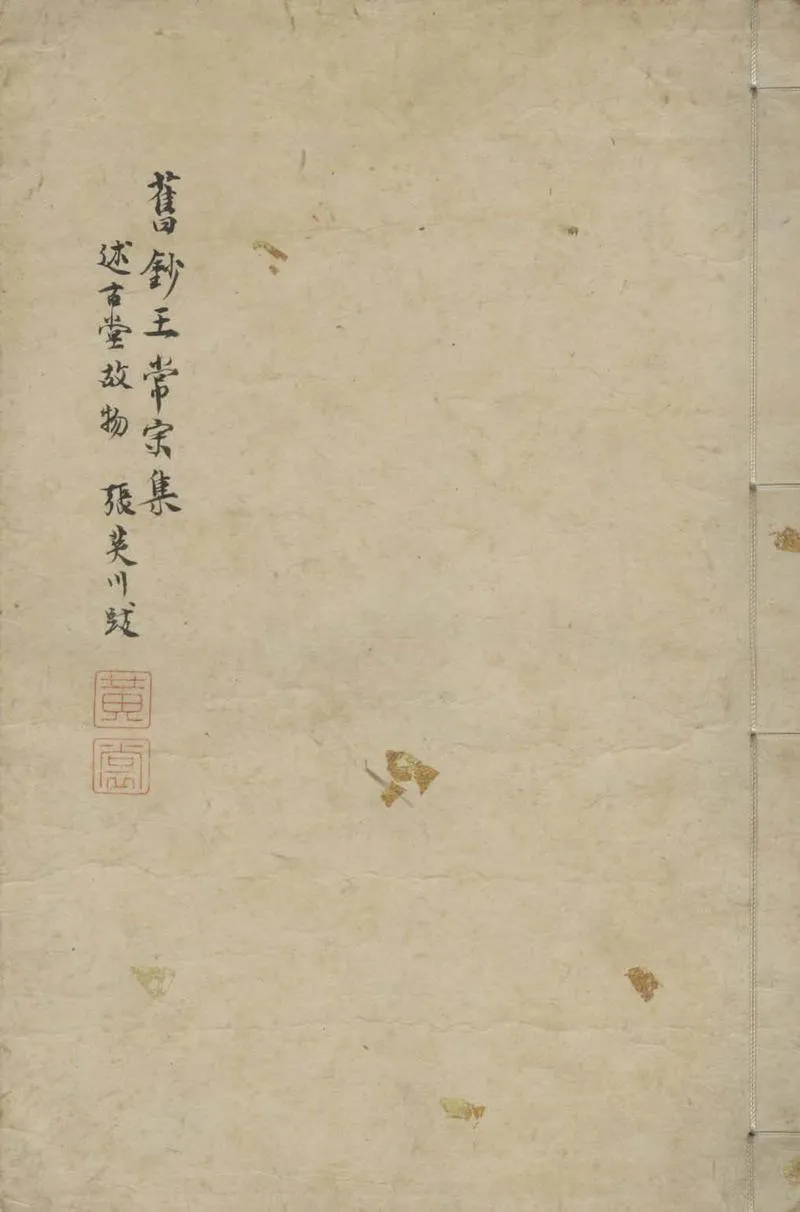 舊鈔王常宗集
述古堂故物 張芙川跋
黃
裳